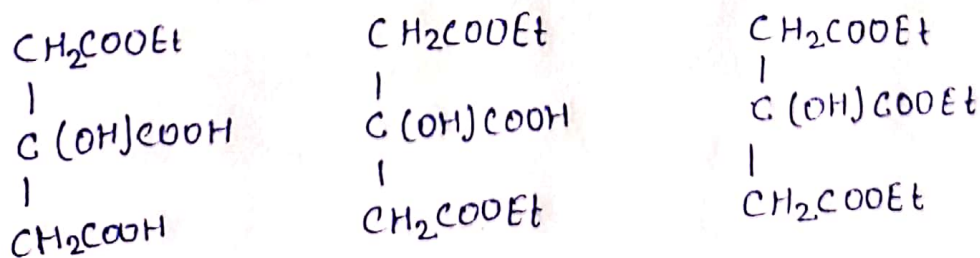 CH₂COOEt
|
C (OH)COOH
|
CH₂COOH
CH₂COOEt
|
C (OH) COOH
|
CH₂COOEt
CH₂COOEt
|
C (OH) COOEt
|
CH₂COOEt